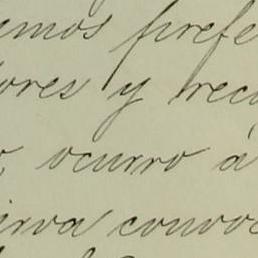 emos prefe
ores y rec
o, ocurro á
irva convoc